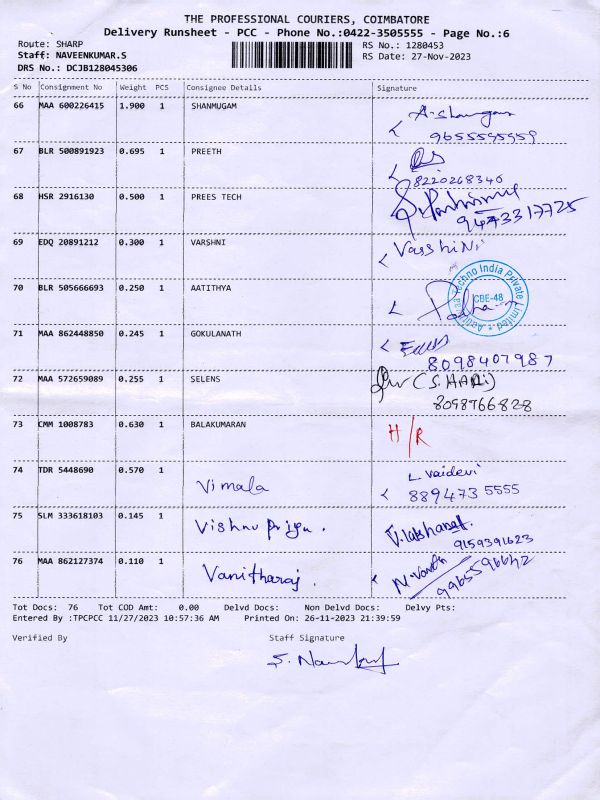 THE PROFESSIONAL COURIERS, COIMBATORE
Delivery Runsheet - PCC - Phone No.:0422-3505555 - Page No.:6
Route: SHARP
Staff: NAVEENKUMAR.S
DRS No.: DCJB128045306
RS No.: 1280453
RS Date: 27-Nov-2023
S No Consignment No Weight PCS Consignee Details Signature
66 MAA 600226415 1.900 1 SHANMUGAM
9655555959
67 BLR 500891923 0.695 1 PREETH
8220268340
68 HSR 2916130 0.500 1 PREES TECH
69 EDQ 20891212 0.300 1 VARSHNI VarshiNi
70 BLR 505666693 0.250 1 AATITHYA
Techno India Private Limited
CBE-48
71 MAA 862448850 0.245 1 GOKULANATH
8098407987
72 MAA 572659089 0.255 1 SELENS (S.HARI)
8098766828
73 CMM 1008783 0.630 1 BALAKUMARAN H/R
74 TDR 5448690 0.570 1 Vimala L Vaidevi
889473 5555
75 SLM 333618103 0.145 1 Vishnu Priya.
9159391623
76 MAA 862127374 0.110 1 Vanitharaj.
9965596642
Tot Docs: 76 Tot COD Amt: 0.00 Delvd Docs: Non Delvd Docs: Delvy Pts:
Entered By :TPCPCC 11/27/2023 10:57:36 AM Printed On: 26-11-2023 21:39:59
Verified By Staff Signature